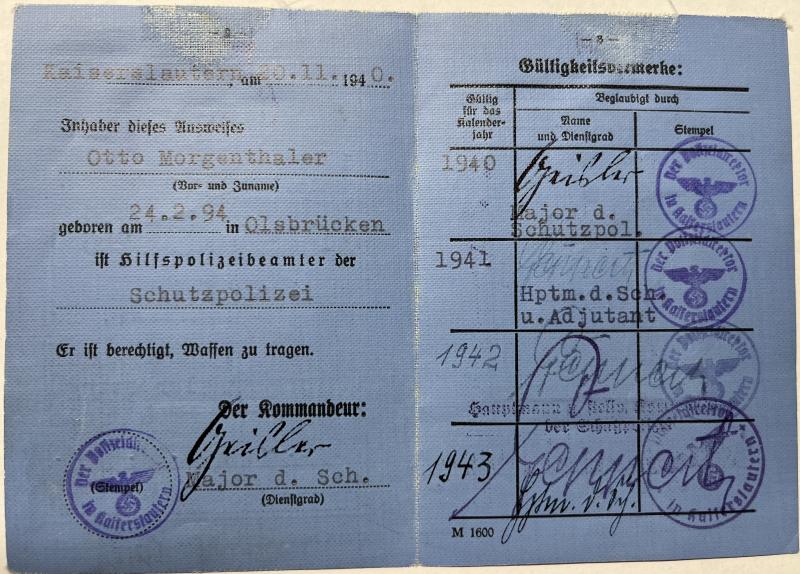 — 2 —
Kaiserslautern, am 20.11. 1940.
Inhaber dieses Ausweises
Otto Morgenthaler
(Vor- und Zuname)
geboren am 24.2.94 in Olsbrücken
ist Hilfspolizeibeamter der
Schutzpolizei
Er ist berechtigt, Waffen zu tragen.
Der Kommandeur:
Geisler
Major d. Sch.
(Stempel)
(Dienstgrad)
Der Polizeidirektor
in Kaiserslautern
— 3 —
Gültigkeitsvermerke:
Gültig für das Kalender-jahr
Beglaubigt durch
Name und Dienstgrad
Stempel
1940
Geisler
Major d.
Schutzpol.
Der Polizeidirektor
in Kaiserslautern
1941
Hptm.d.Sch.
u.Adjutant
Der Polizeidirektor
in Kaiserslautern
1942
Hauptmann u. stellv.
der Schutz
Polizeidirektor
1943
Hptm. d. Sch.
in Kaiserslautern
M 1600